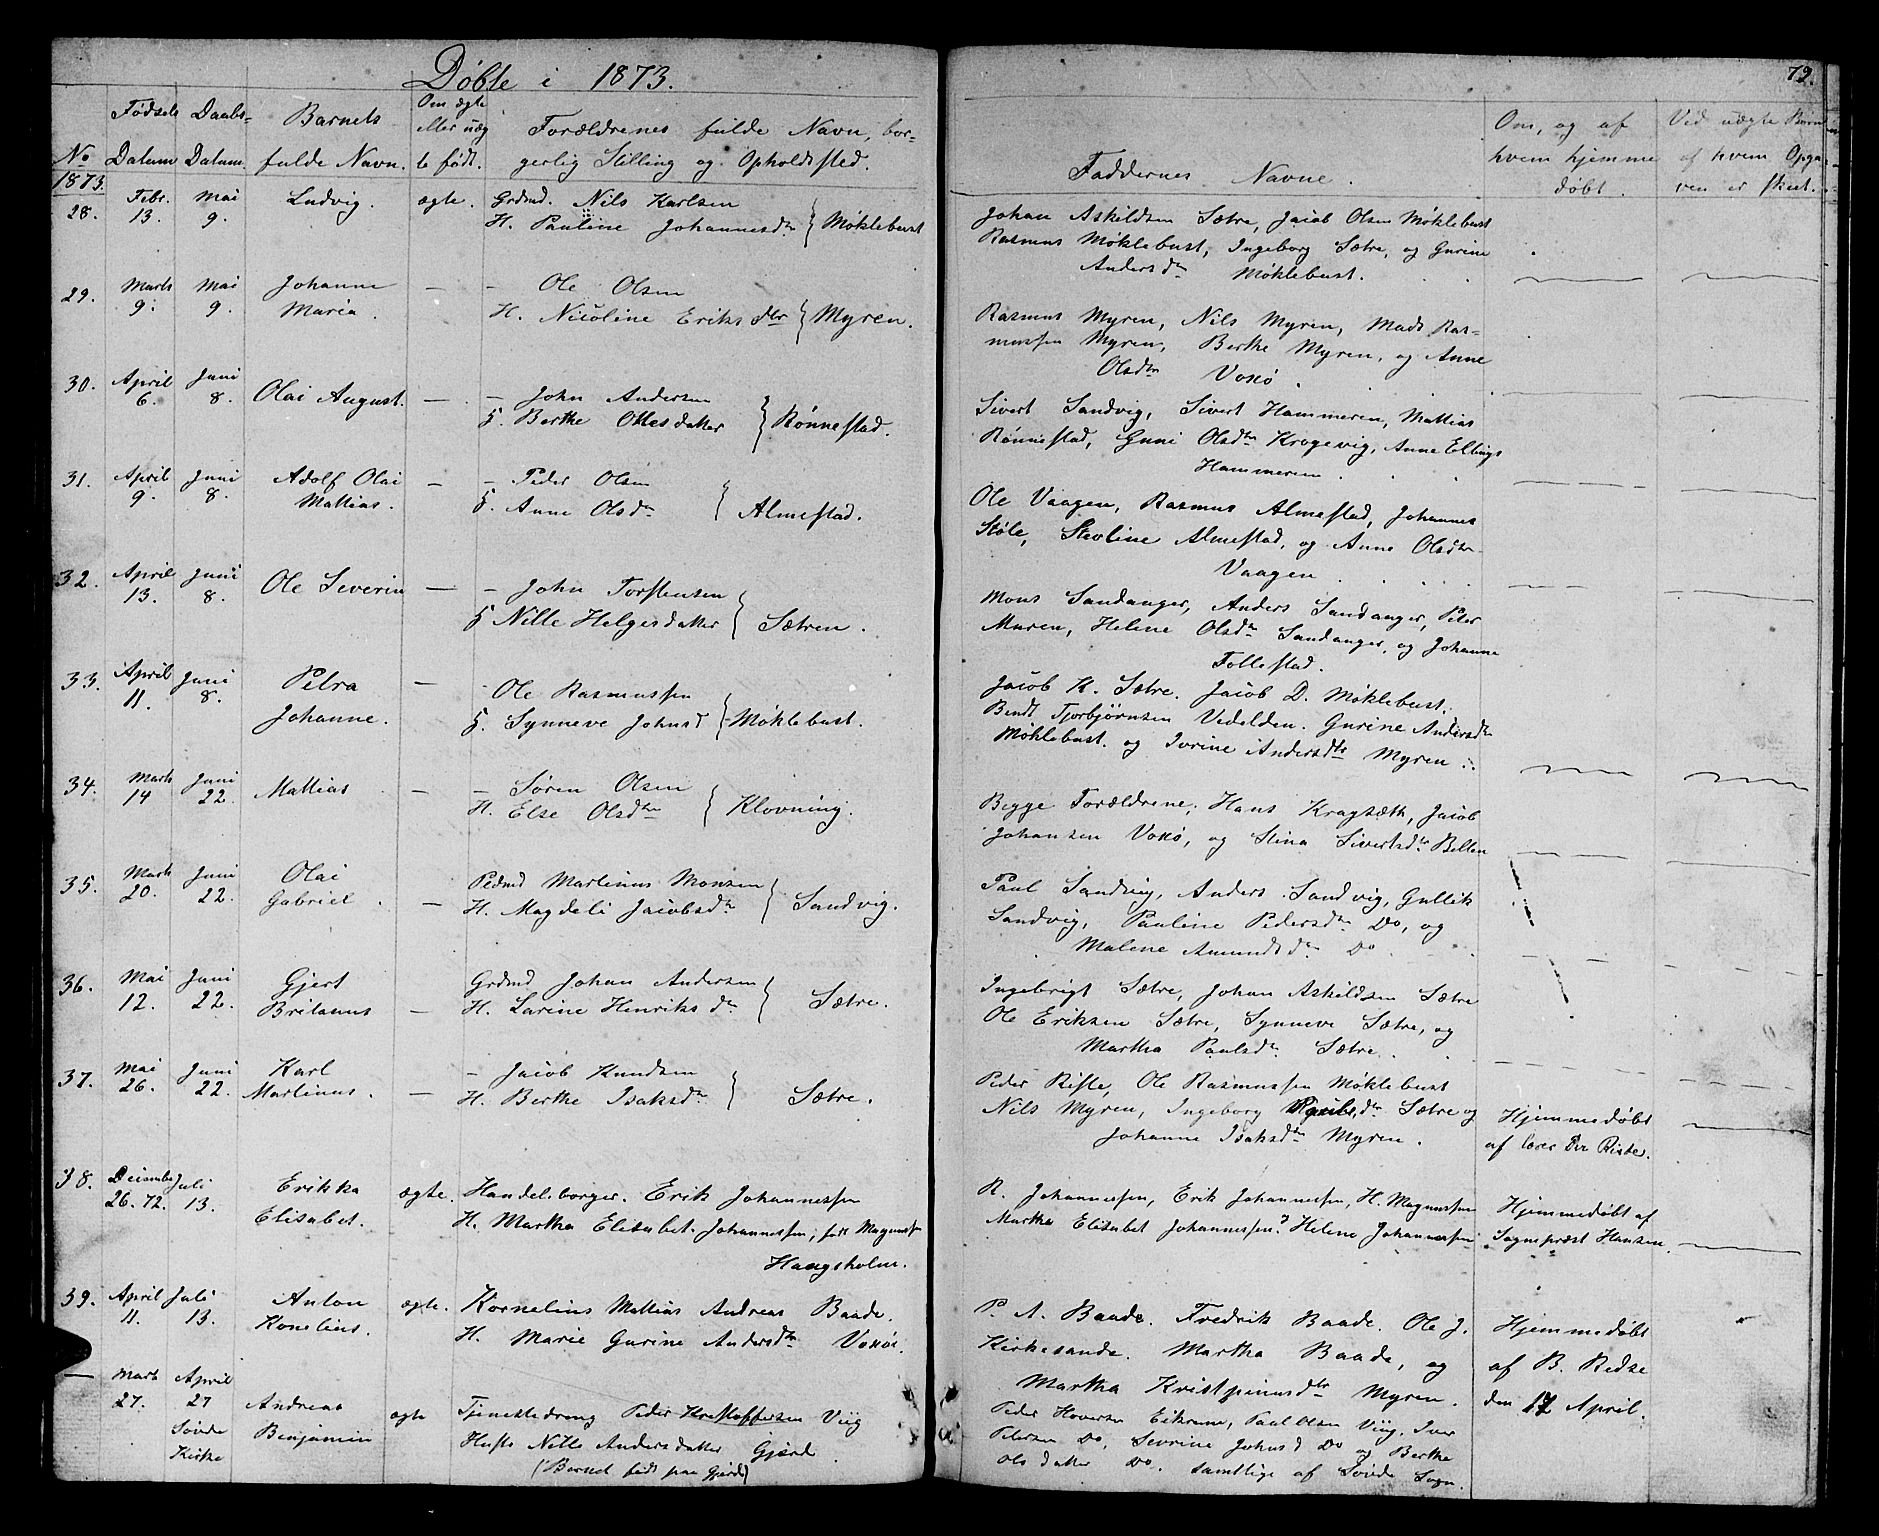 Døbte i 1873.
79.
No
Fødsels Datum
Daabs- Datum.
Barnets fulde Navn.
Om ægte eller uæg te født.
Forældrenes fulde Navn, bor-
gerlig Stilling og Opholdsted.
Faddernes Navne.
Om, og af hvem hjemme døbt.
Ved uægte Børn af hvem Opga ven er skeet.
1873.
28. Febr. 13. Mai 9. Ludvig. ægte. Grdmd. Nils Karlsen
H. Pauline Johannesdtr } Møklebust
Johan Askildsen Sætre, Jacob Olsen Møklebust
Rasmus Møklebust, Ingeborg Sætre, og Gurine
Andersdtr Møklebust.
29. Marts 9. Mai 9. Johanne Maria. — — Ole Olsen
H. Nicoline Eriksdtr } Myren.
Rasmus Myren, Nils Myren, Mads Ras-
mussen Myren, Berthe Myren, og Anne
Olsdtr Voxø.
30. April 6. Juni 8. Olai August. — — John Andersen
H. Berthe Ottesdatter } Rønnestad.
Sivert Sandvig, Sivert Hammeren, Mattias
Rønnestad, Guni Olsdtr Krogevig, Anne Ellings
Hammeren.
31. April 9. Juni 8. Adolf Olai Mattias. — — Peder Olsen
H. Anne Olsdtr } Almestad.
Ole Vaagen, Rasmus Almestad, Johannes
Støle, Steoline Almestad, og Anne Olsdtr
Vaagen
32. April 13. Juni 8. Ole Severin — — John Torstensen
H. Nille Helgesdatter } Sætren.
Mons Sandanger, Anders Sandanger, Peter
Muren, Helene Olsdtr Sandanger, og Johanne
Follestad.
33. April 11. Juni 8. Petra Johanne. — — Ole Rasmussen
H. Synneve Johnsd } Møklebust.
Jacob K. Sætre. Jacob D. Møklebust.
Bendt Torbjørnsen Vedelden. Gurine Andersdtr
Møklebust. og Ivrine Andersdtr Myren.
34. Marts 14 Juni 22. Mattias. — — Søren Olsen
H. Else Olsdtr } Klovning.
Begge Forældrene, Hans Kragsæth, Jacob
Johansen Voxø, og Stina Sivertsdtr Belten
35. Marts 20. Juni 22. Olai Gabriel. — Pldmd Martinus Monsen
H. Magdeli Jacobsdtr } Sandvig.
Paul Sandvig, Anders Sandvig, Gullik
Sandvig, Pauline Pedersdtr Do, og
Malene Amundsdtr Do
36. Mai 12. Juni 22. Gjert Britanus — Grdmd Johan Andersen
H. Larine Henriksdtr } Sætre.
Ingebrigt Sætre, Johan Askildsen Sætre
Ole Eriksen Sætre, Synneve Sætre, og
Martha Paulsdtr Sætre.
37. Mai 26. Juni 22. Karl Martinus. — — Jacob Knudsen
H. Berthe Isaksdtr } Sætre.
Peder Riste, Ole Rasmussen Møklebust
Nils Myren, Ingeborg Paulsdtr Sætre og
Johanne Isaksdtr Myren.
Hjemmedøbt
af Riste.
38. December 26.72. Juli 13. Erikka Elisabet. ægte. Handelsborger. Erik Johannessen
H. Martha Elisabet Johannessen, født Magnus
Haugsholm.
R. Johannessen, Erik Johannessen, H. Magnussen
Martha Elisabet Johannessen, Helene Johannessen
Hjemmedøbt af
Sognepræst Hansen.
39. April 11. Juli 13. Anton Konelius. ægte. Kornelius Mattias Andreas Baade.
H. Marie Gurine Andersdtr Voxø.
P. A. Baade. Fredrik Baade. Ole J.
Kirkesande. Martha Baade, og
Martha Kristpinusdtr Myren.
Hjemmedøbt
af B. Redse
den 12 April.
— Mart 27. April 27 Søvde Kirke Andreas Benjamin ægte Tjenestedreng Peder Kristoffersen Viig
Hustr Nille Andersdatter Gjærd
(Barnet født paa Gjærd)
Peder Hoversen Eikrem, Paul Olsen Viig, Iver
Petersen Do, Sevrine Johnsd Do og Berthe
Olsdatter Do. samtlige af Søvde Sogn.